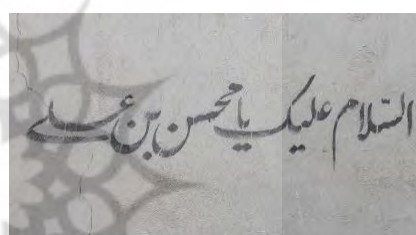 السّلام علیک یا محسن بن علے